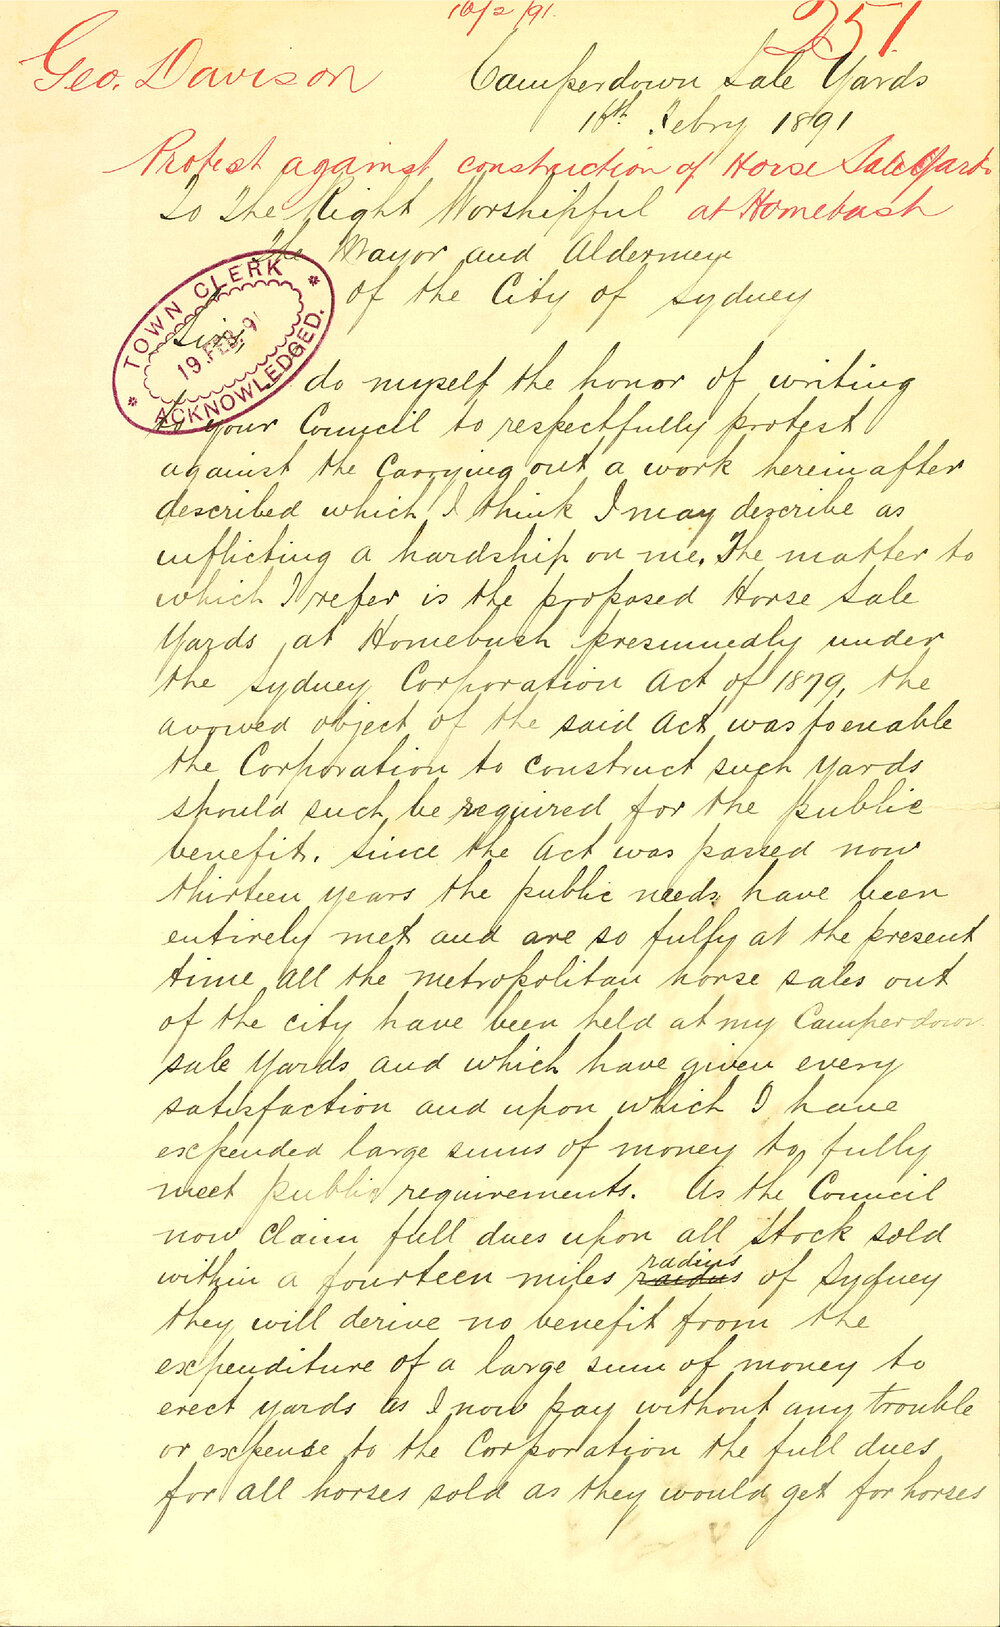 16/2/91.
251
Geo. Davison
Camperdown Sale Yards
16th Febry 1891
Protest against construction of Horse Sale Yards
at Homebush
To The Right Worshipful
The Mayor and Aldermen
of the City of Sydney
TOWN CLERK
19. FEB. 91
ACKNOWLEDGED.
Sir,
do myself the honor of writing
to your Council to respectfully protest
against the Carrying out a work hereinafter
described which I think I may describe as
inflicting a hardship on me. The matter to
which I refer is the proposed Horse Sale
Yards at Homebush presumedly under
the Sydney Corporation Act of 1879, the
avowed object of the said Act was to enable
the Corporation to construct such Yards
should such be required for the public
benefit. Since the Act was passed now
thirteen years the public needs have been
entirely met and are so fully at the present
time all the metropolitan horse sales out
of the city have been held at my Camperdown
sale Yards and which have given every
satisfaction and upon which I have
expended large sums of money to fully
meet public requirements. As the Council
now Claim full dues upon all Stock sold
within a fourteen miles radius of Sydney
they will derive no benefit from the
expenditure of a large sum of money to
erect yards as I now pay without any trouble
or expense to the Corporation the full dues
for all horses sold as they would get for horses